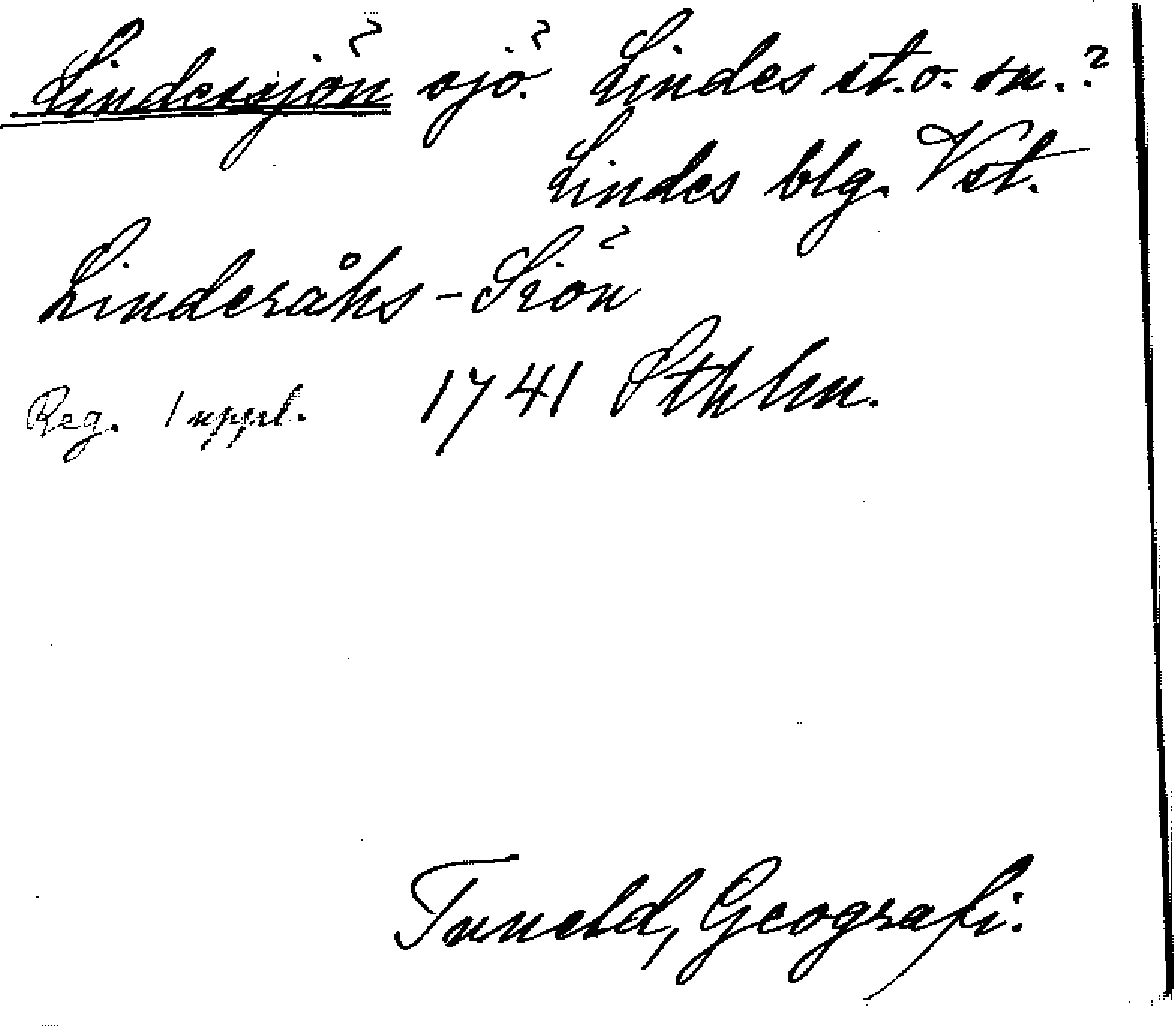 Lindessjön sjö? Lindes st. o. sn.?
Lindes blg. Vst.
Linderåhs-Siön
Reg. 1 uppl. 1741 Sthlm.
Tuneld, Geografi.